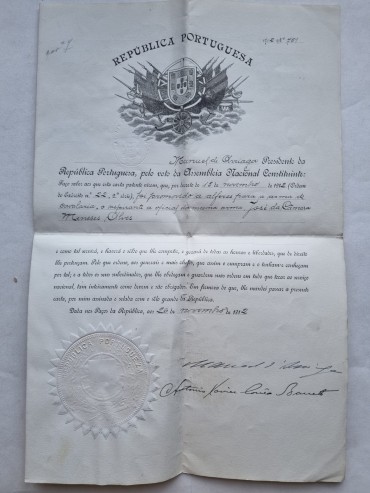 REPÚBLICA PORTUGUESA
Manuel de Arriaga Presidente da
República Portuguesa, pelo voto da Assembleia Nacional Constituinte:
Faço saber aos que esta carta patente virem, que, por decreto de de novembro de 1912 (Ordem
do Exército n.º 22, 2.ª série), foi promovido a alferes para a arma de
cavalaria, o aspirante a oficial da mesma arma José da Camara
Meneses Alves
e como tal servirá, e haverá o soldo que lhe competir, e gozará de todas as honras e liberdades, que de direito
lhe pertençam. Pelo que ordeno, aos generais e mais chefes, que assim o cumpram e o tenham e conheçam
por tal; e a todos os seus subordinados, que lhe obedeçam e guardem suas ordens em tudo que tocar ao serviço
nacional, tam inteiramente como devem e são obrigados. Em firmeza do que, lhe mandei passar a presente
carta, por mim assinada e selada com o sêlo grande da República.
Dada nos Paços da República, aos 20 de novembro de 1912
Manuel d'Arriaga
António Xavier Correia Barreto
REPUBLICA PORTUGUESA